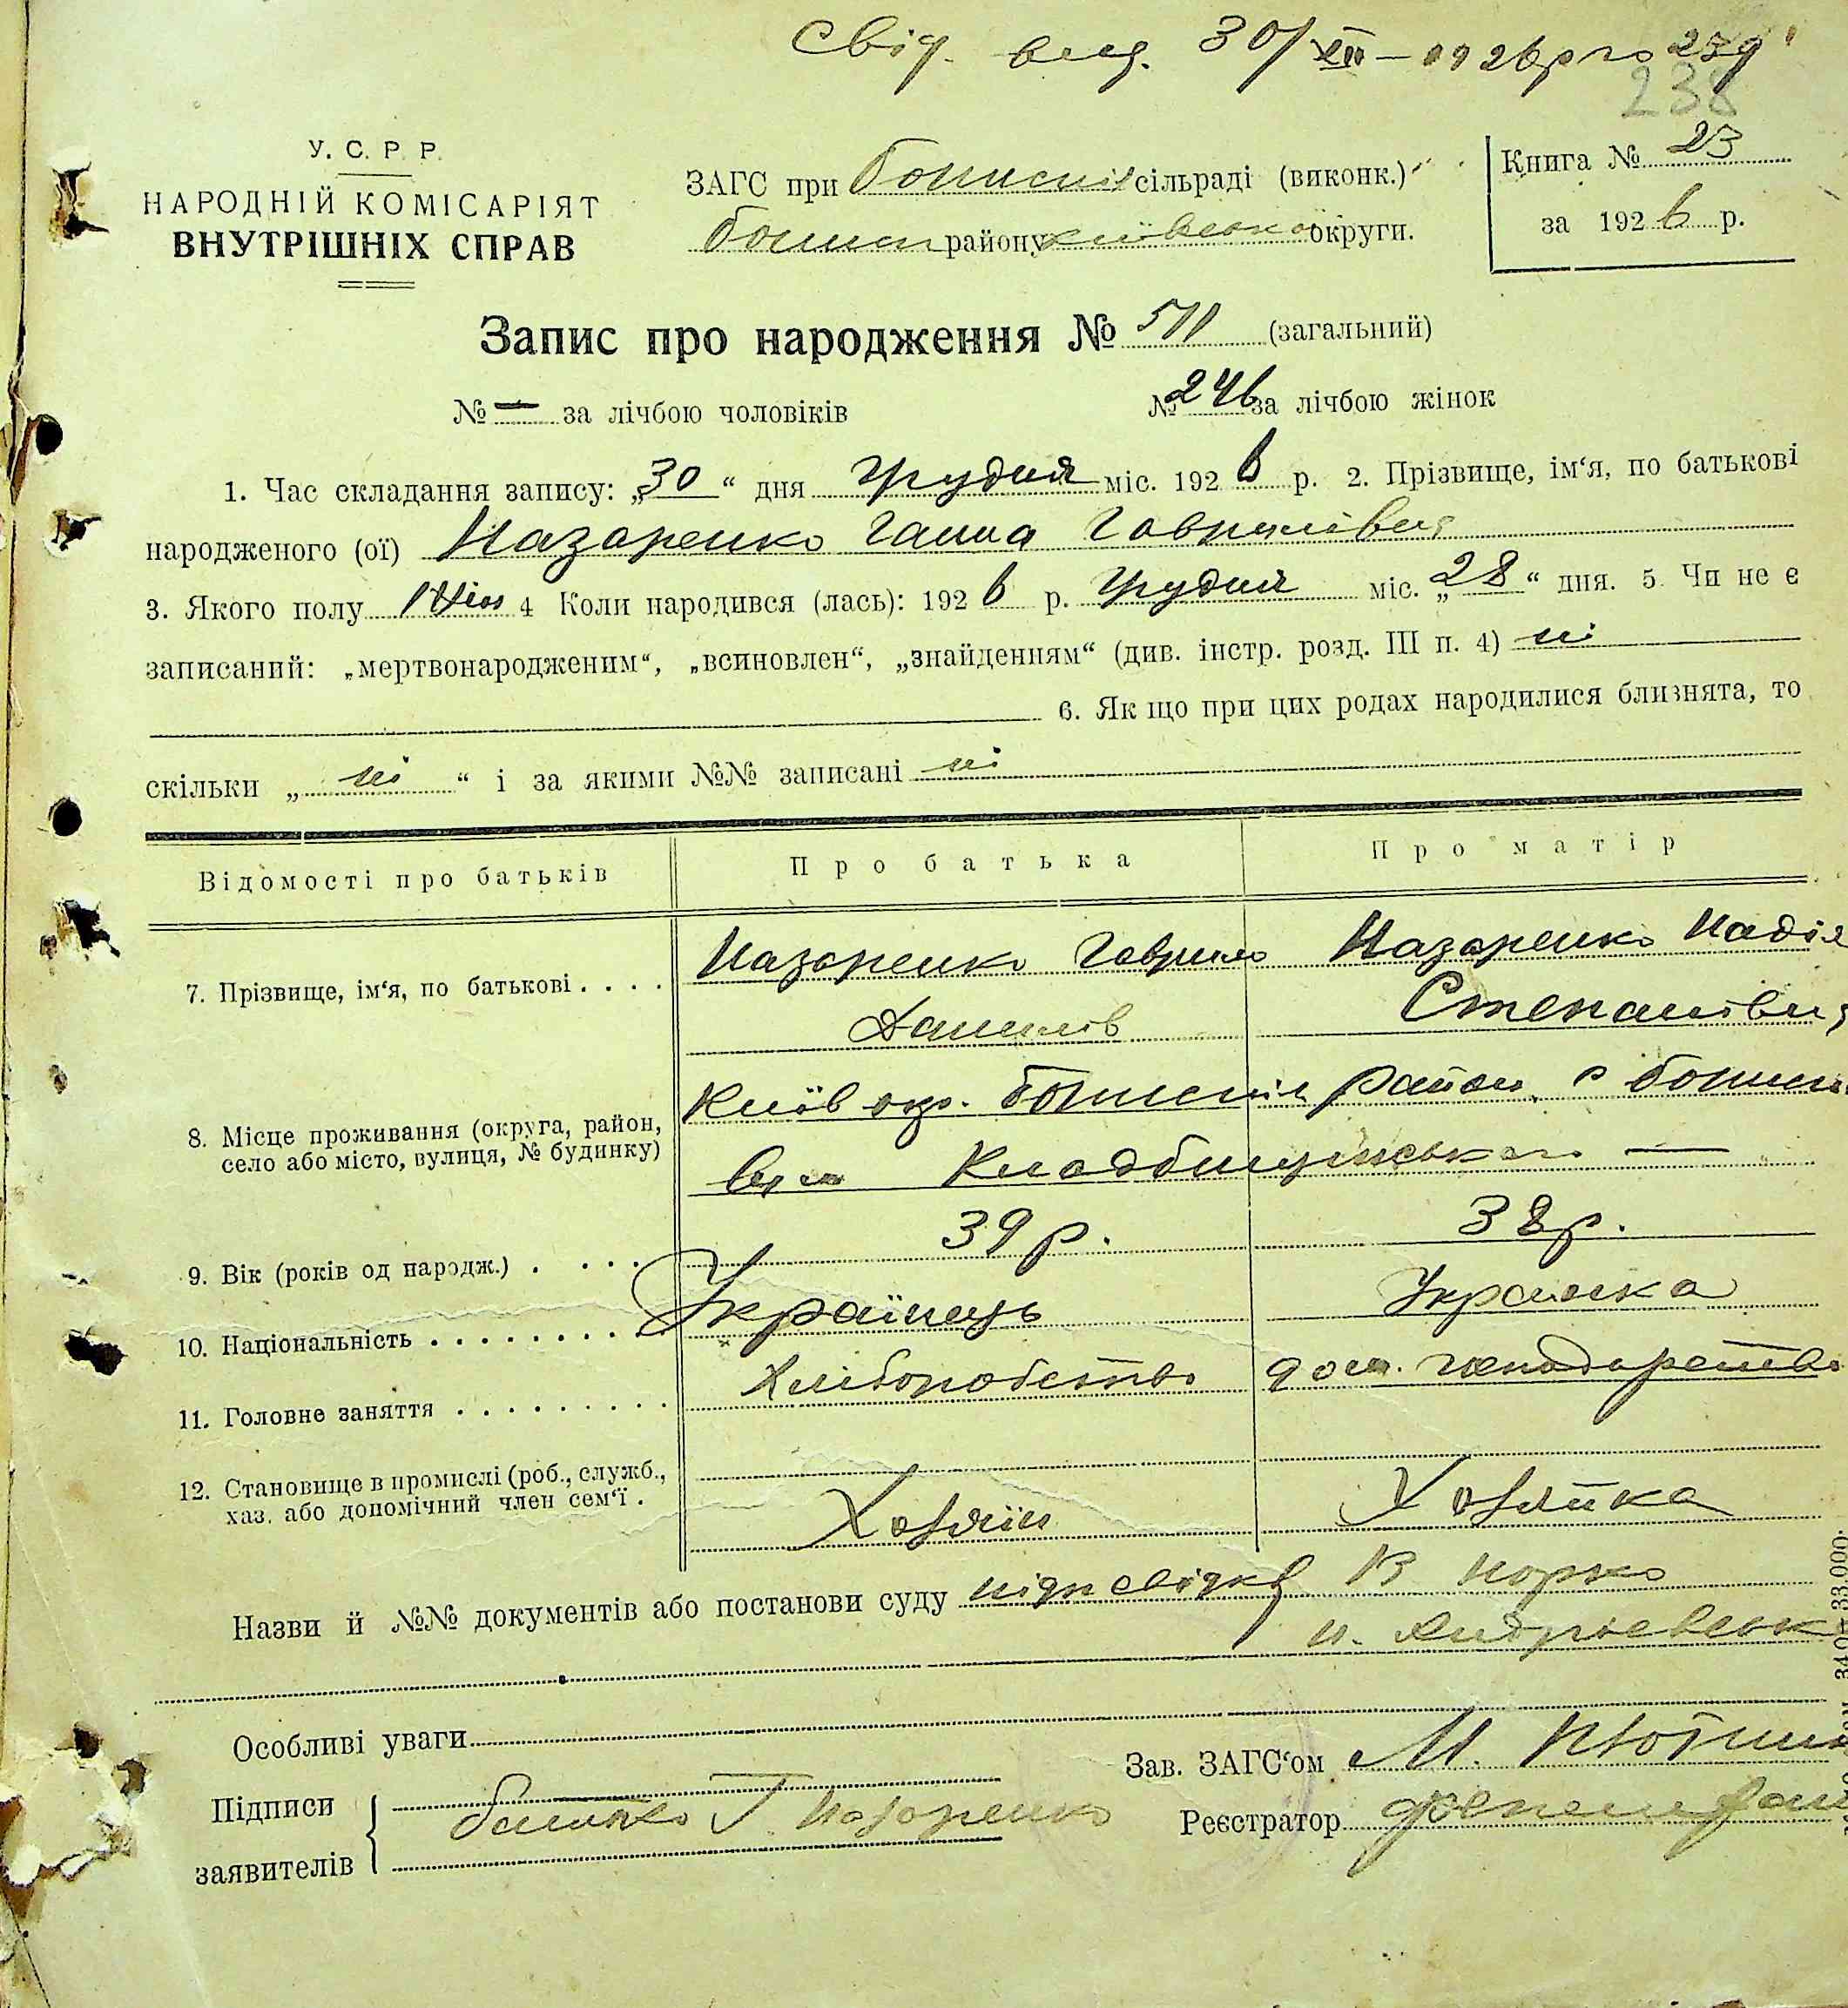 Свід. вид. 30/XII – 1926 р
238
У. С. Р. Р.
НАРОДНІЙ КОМІСАРІЯТ
ВНУТРІШНІХ СПРАВ
ЗАГС при Бориспіл сільраді (виконк.)
Борисп району Київсько округи.
Книга № 23
за 1926 р.
Запис про народження № 511 (загальний)
№ — за лічбою чоловіків № 246 за лічбою жінок
1. Час складання запису: „30“ дня Грудня міс. 1926 р. 2. Прізвище, ім‘я, по батькові
народженого (ої) Назаренко Ганна Гаврилівна
3. Якого полу Жін 4 Коли народився (лась): 1926 р. Грудня міс. „28“ дня. 5. Чи не є
записаний: „мертвонародженим“, „всиновлен“, „знайденням“ (див. інстр. розд. III п. 4) ні
6. Якщо при цих родах народилися близнята, то
скільки „ ні “ і за якими №№ записані ні
Відомості про батьків Про батька Про матір
7. Прізвище, ім‘я, по батькові . . . . Назаренко Гаврило Назаренко Надія
Данилів Степанівна
8. Місце проживання (округа, район, село або місто, вулиця, № будинку) Київ окр. Бориспіл район, с Борисп
вул Кладбищенська —
9. Вік (років од народж.) . . . . 39 р. 38 р.
10. Національність . . . . . . . . Українець Українка
11. Головне заняття . . . . . . . . . Хліборобство дом. господарство
12. Становище в промислі (роб., служб.,
хаз. або допомічний член сем‘ї . Хазяїн Хазяйка
Назви й №№ документів або постанови суду
Особливі уваги
Зав. ЗАГС‘ом М.
Підписи
заявителів батько Г. Назаренко
Реєстратор